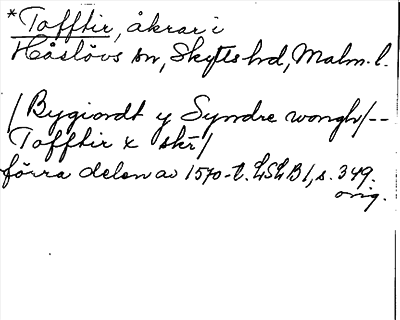 *Tofftir, åkrar i
Håslövs sn, Skytts hd, Malm. l.
/Bygiordt y Syndre wongh/--
Tofftir x skr/
förra delen av 1570-t. LSLB1, s. 349.
orig.